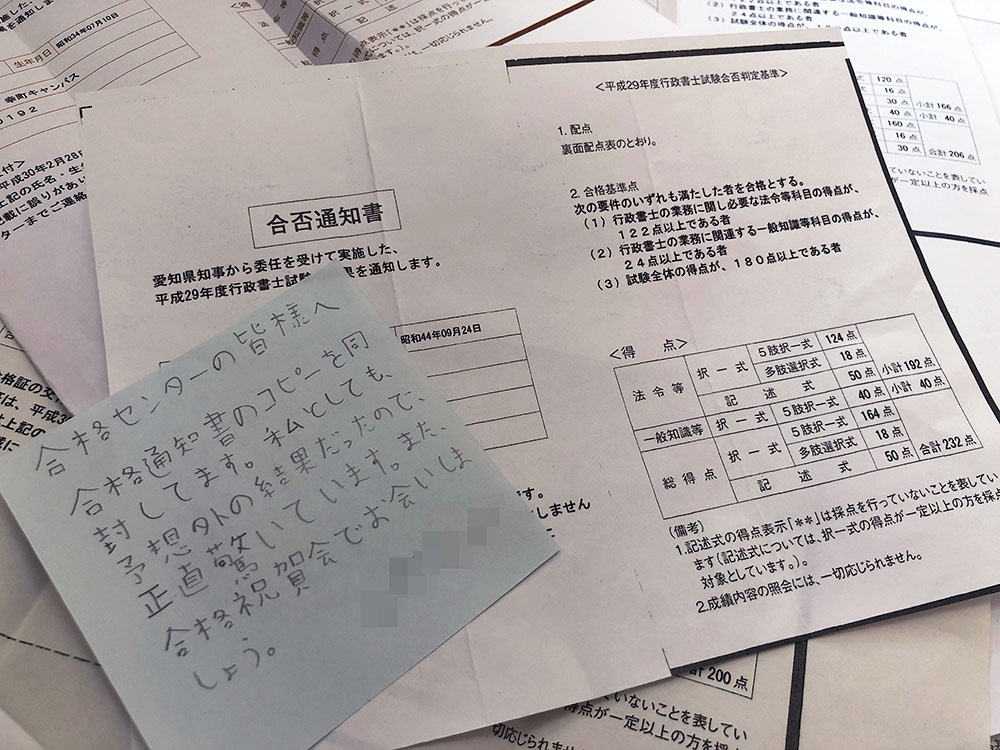 生年月日 昭和34年07月10日
幸町キャンパス
0192
平成30年2月28日
合否通知書
愛知県知事から委任を受けて実施した、
平成29年度行政書士試験
果を通知します。
昭和44年09月24日
合格センターの皆様へ
合格通知書のコピーを同
封してます。私としても、
予想外の結果だったので、
正直驚いています。また、
合格祝賀会でお会いしま
しょう。
<平成29年度行政書士試験合否判定基準>
1. 配点
裏面配点表のとおり。
2. 合格基準点
次の要件のいずれも満たした者を合格とする。
(1) 行政書士の業務に関し必要な法令等科目の得点が、
122点以上である者
(2) 行政書士の業務に関連する一般知識等科目の得点が、
24点以上である者
(3) 試験全体の得点が、180点以上である者
<得 点>
法令等 択一式 5肢択一式 124点
多肢選択式 18点
記述式 50点 小計192点
一般知識等 択一式 5肢択一式 40点 小計 40点
総得点 択一式 5肢択一式 164点
多肢選択式 18点
記述式 50点 合計232点
(備考)
1.記述式の得点表示「**」は採点を行っていないことを表してい
ます(記述式については、択一式の得点が一定以上の方を採
対象としています。)。
2.成績内容の照会には、一切応じられません。
120点
16点
30点 小計166点
40点 小計 40点
160点
16点
30点 合計206点
計200点
いないことを表してい
得点が一定以上の方を採
切応じられません